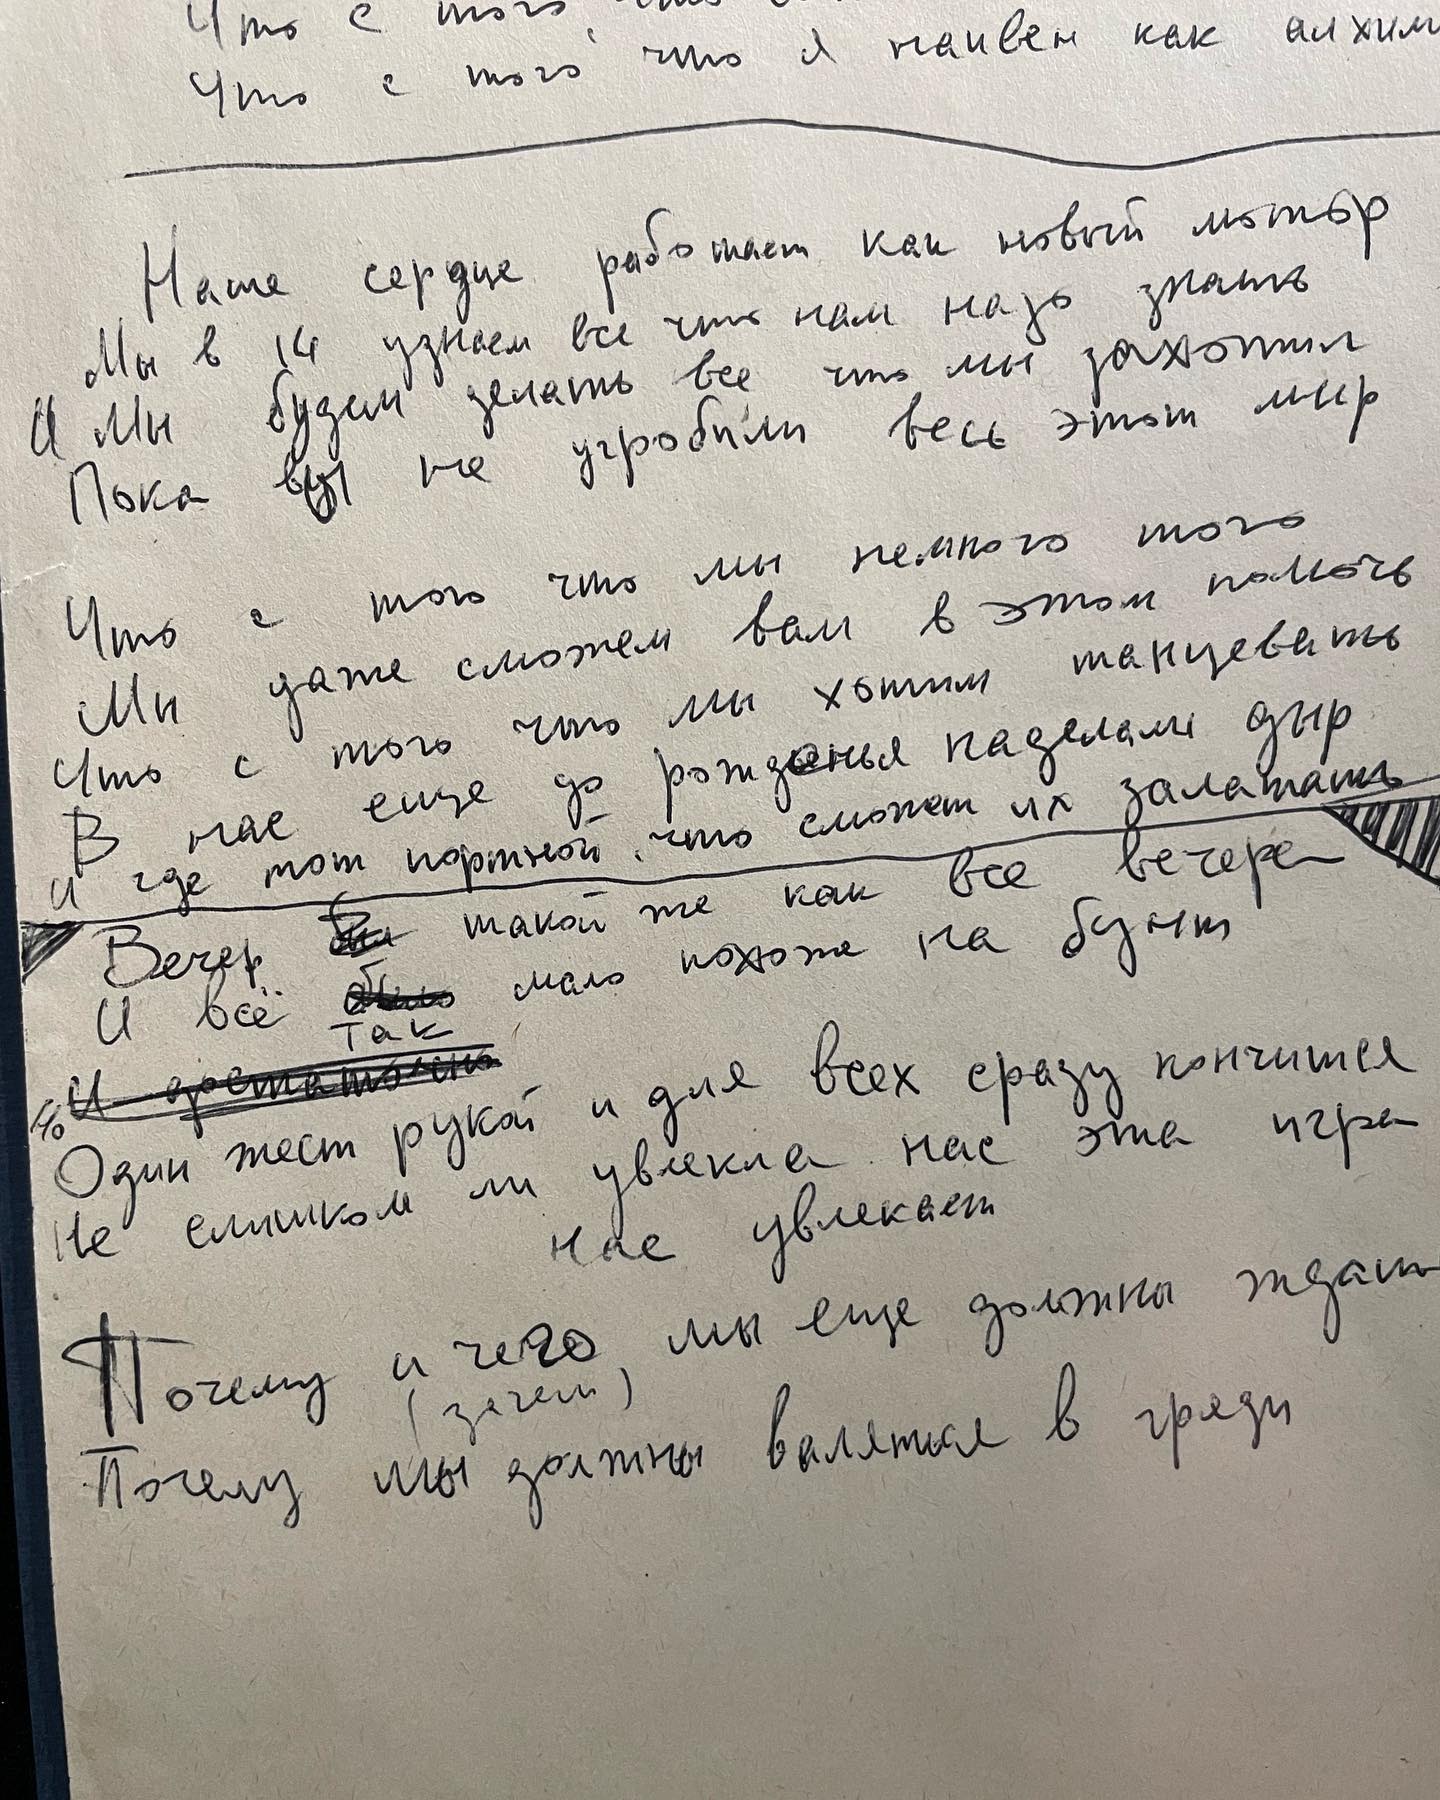 Что с того, что
Что с того что я наивен как алхим
Наше сердце работает как новый мотор
Мы в 14 узнаем все что нам надо знать
И Мы будем делать все что мы захотим
Пока вы не угробили весь этот мир
Что с того что мы немного того
Мы даже сможем вам в этом помочь
Что с того что мы хотим танцевать
В нас еще до рожденья наделали дыр
И где тот портной, что сможет их залатать
Вечер такой же как все вечера
И всё так мало похоже на бунт
И достаточно
Но
Один жест рукой и для всех сразу кончится
Не слишком ли увлекла нас эта игра
нас увлекает
Почему и чего, мы еще должны ждать
(зачем)
Почему мы должны валятся в грязи